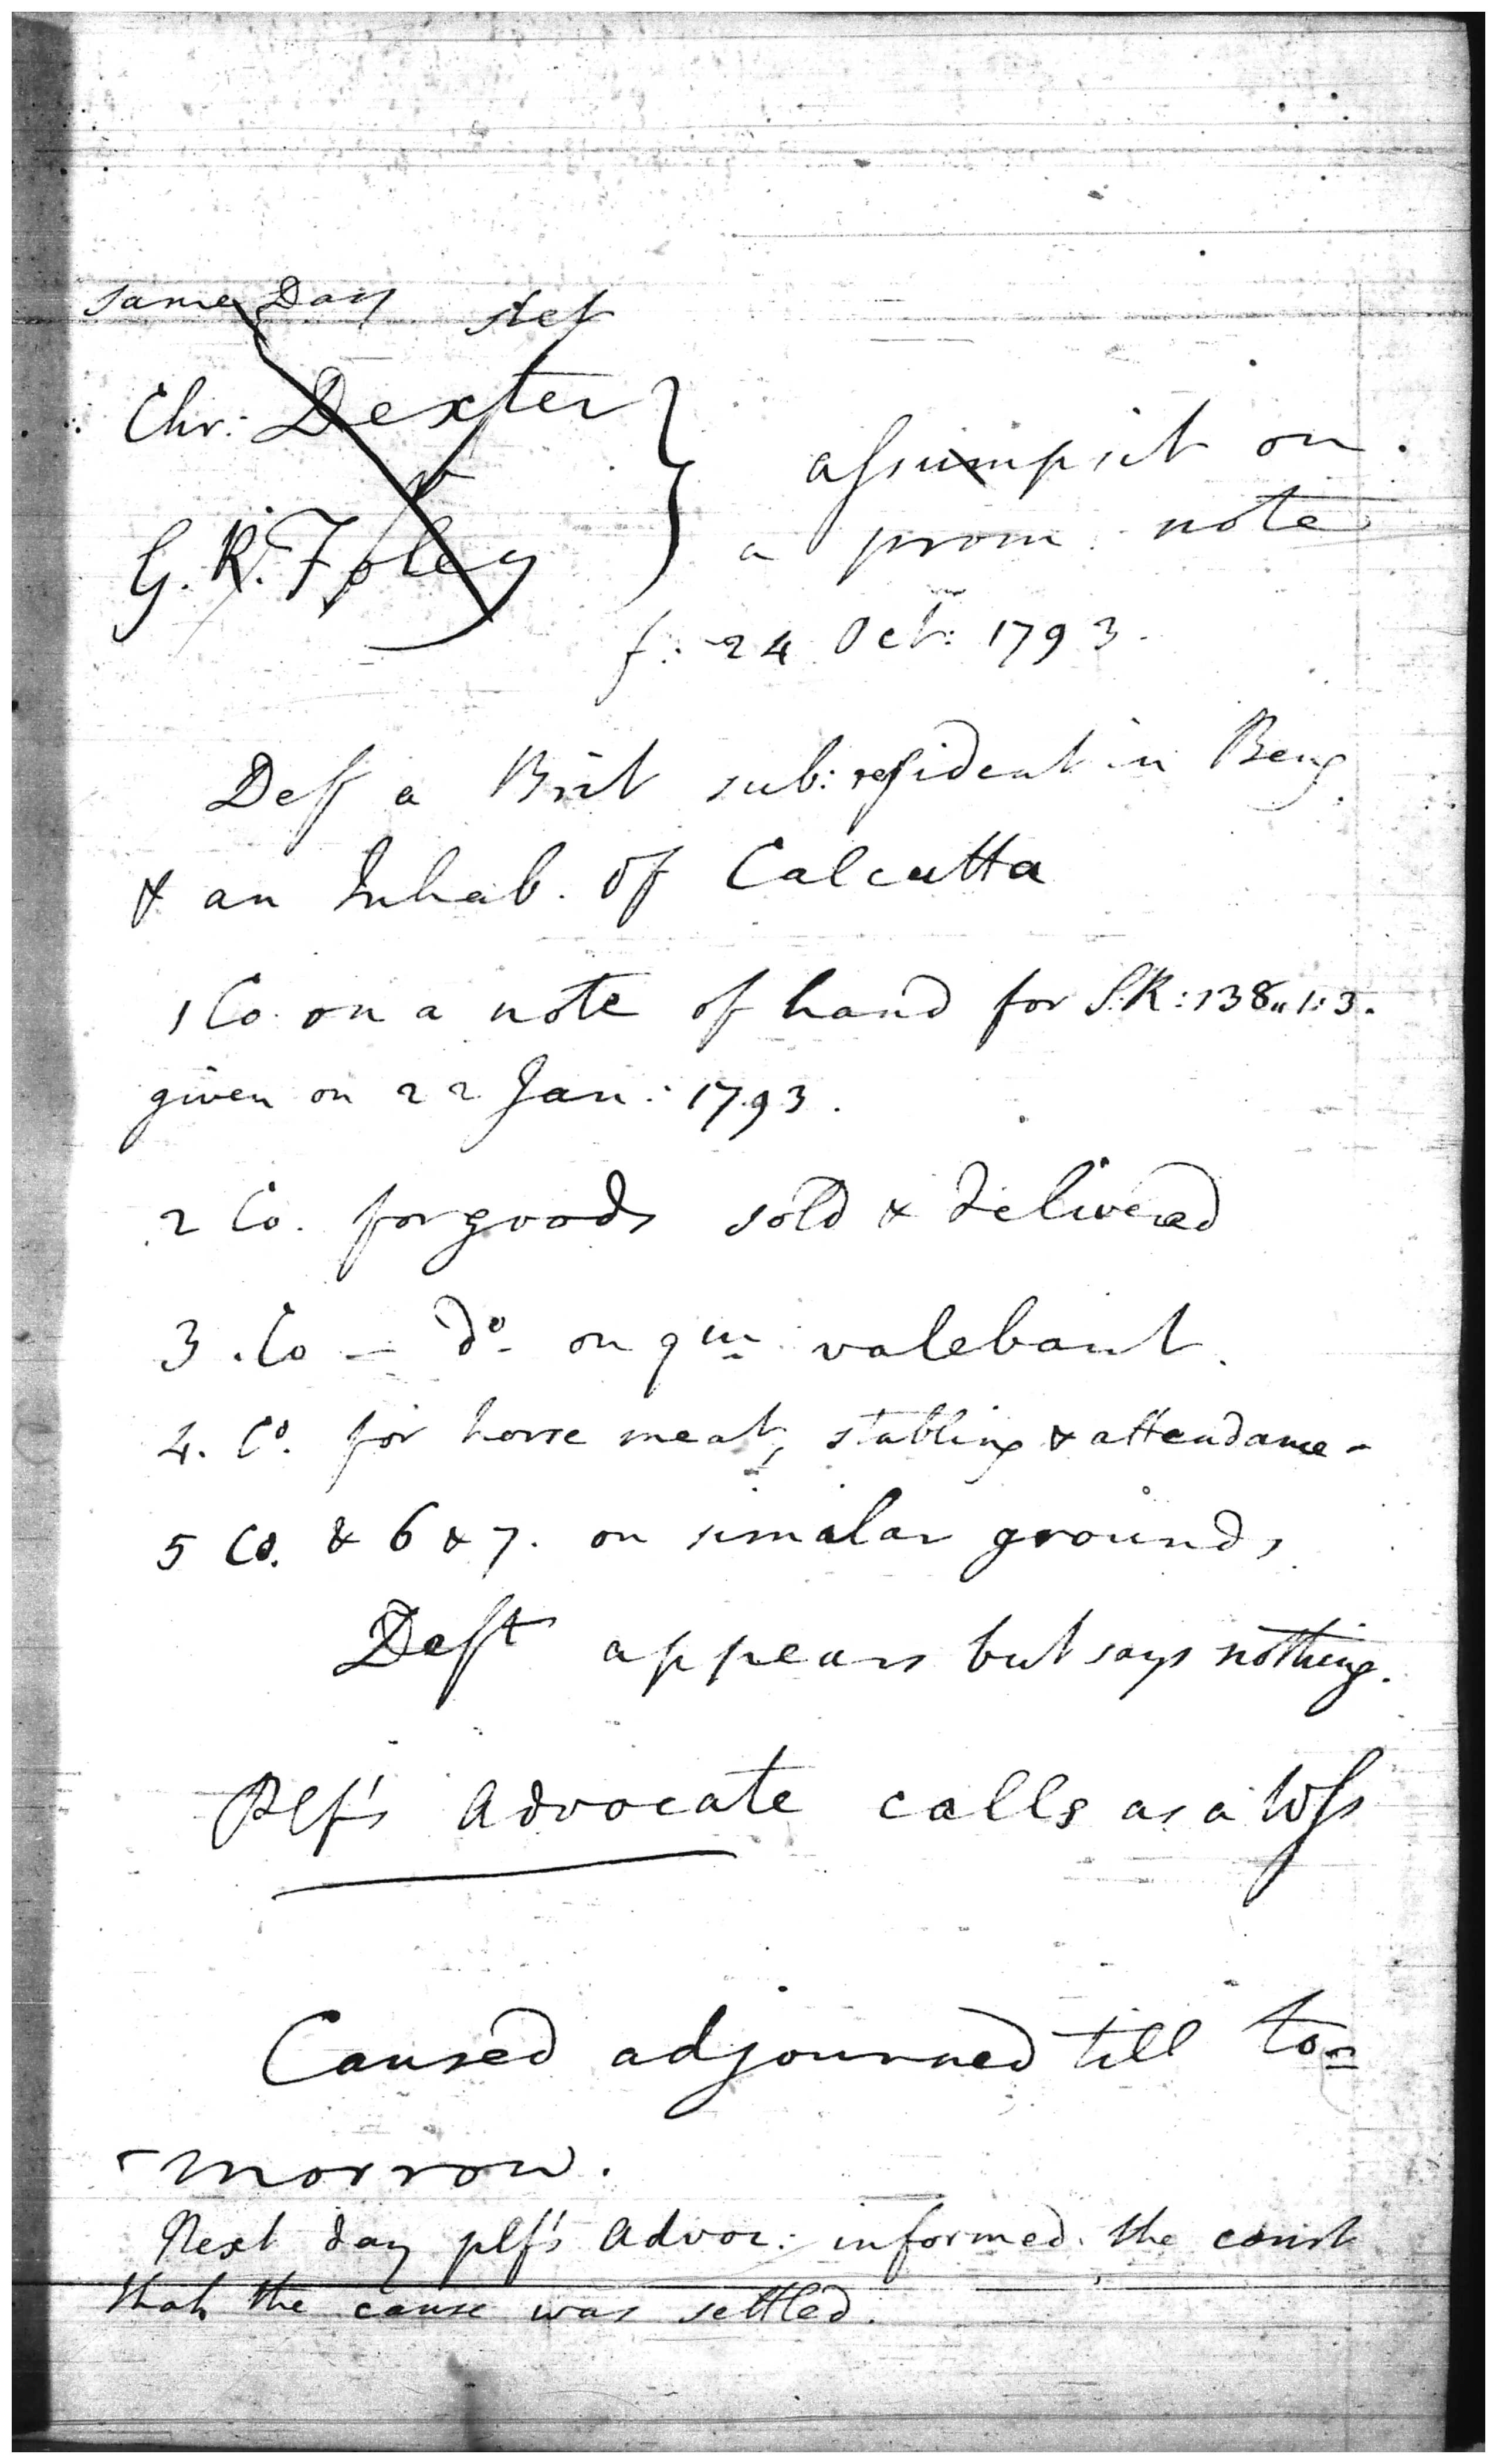 Same Day stet
Chr: Dexter
v
G. R. Foley
assumpsit on
a prom: note
f: 24 Oct: 1793.
Def a Brit sub: resident in Beng.
& an Inhab. of Calcutta
1 Co. on a note of hand for S.R: 138„1:3.
given on 22 Jan: 1793.
2 Co. for goods sold & delivered
3. Co — do. on qm valebant.
4. Co. for horse meat, stabling & attendance -
5 Co. & 6 & 7. on similar grounds
Deft appears but says nothing.
Plf's Advocate calls as a Wss
Caused adjourned till to=
-morrow.
Next day plf's Advoc: informed the court
that the cause was settled.